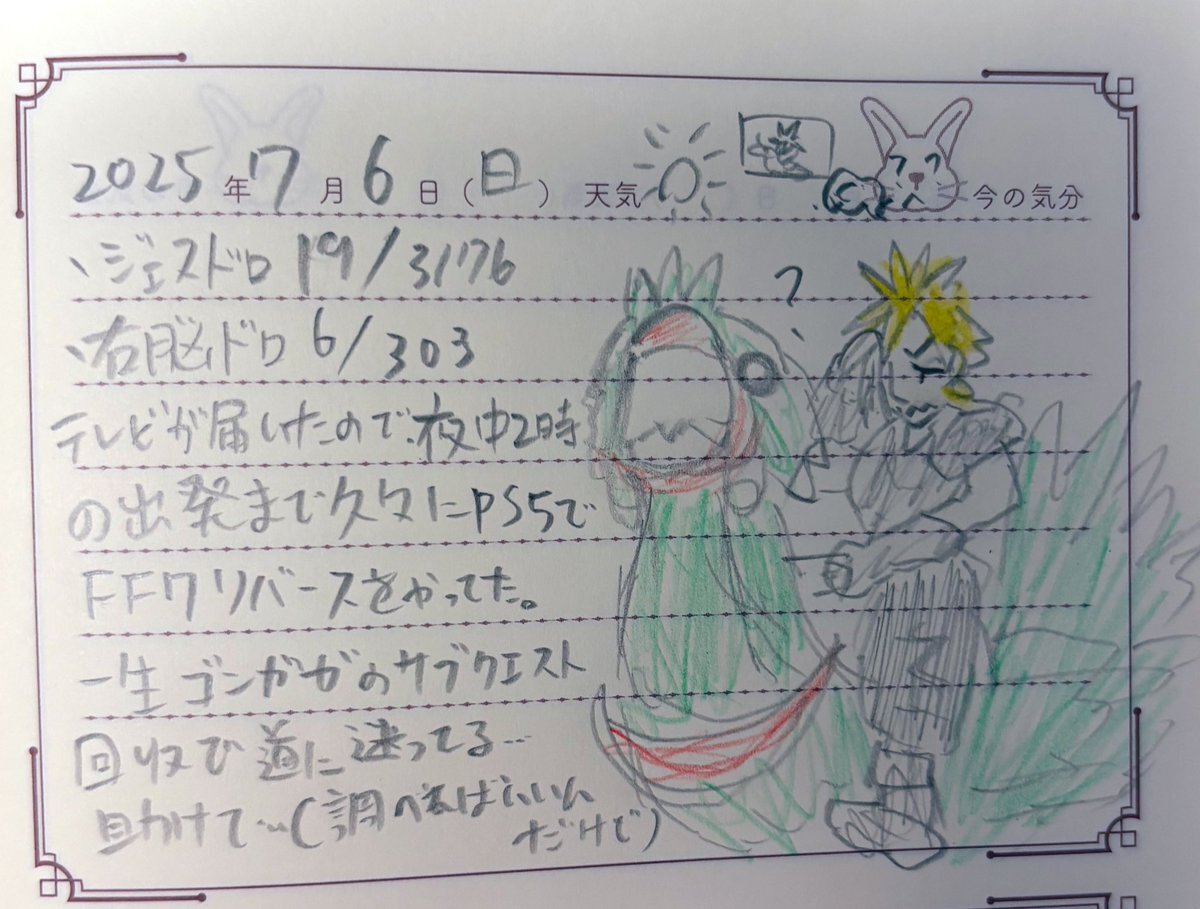 2025年7月6日(日) 天気 今の気分
、ジェスドロ 19/3176
、右脳ドロ 6/303
テレビが届いたので、夜中2時
の出発まで久々にPS5で
FF7リバースをやってた。
一生ゴンガガのサブクエスト
回収で道に迷ってる…
助けて…(調べればいいん
だけど)
?